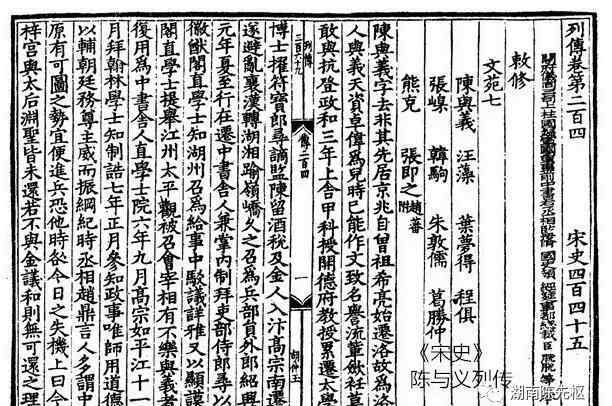 列傳卷第二百四
宋史四百四十五
敕修
文苑七
陳與義 汪藻 葉夢得 程俱
張嵲 韓駒 朱敦儒 葛勝仲
熊克 張即之 趙蕃附
陳與義字去非其先居京兆自曾祖希亮始遷洛故為洛
人與義天資卓偉為兒時已能作文致名譽流輩斂衽莫
敢與抗登政和三年上舍甲科授開德府教授累遷太學
列傳
二百六十九
傳二百四
一
胡仲玉
博士擢符寶郎尋謫監陳留酒稅及金人入汴高宗南遷
遂避亂襄漢轉湖湘踰嶺嶠久之召為兵部員外郎紹興
元年夏至行在遷中書舍人兼掌內制拜吏部侍郎尋以
徽猷閣直學士知湖州召為給事中駁議詳雅又以顯謨
閣直學士提舉江州太平觀被召會宰相有不樂與義者
復用為中書舍人直學士院六年九月高宗如平江十一
月拜翰林學士知制誥七年正月參知政事唯師用道德
以輔朝廷務尊主威而振綱紀時丞相趙鼎言人多謂中
原有可圖之勢宜便進兵恐他時咎今日之失機上曰今
梓宮與太后淵聖皆未還若不與金議和則無可還之理
《宋史》
陈与义列传
湖南陈先枢